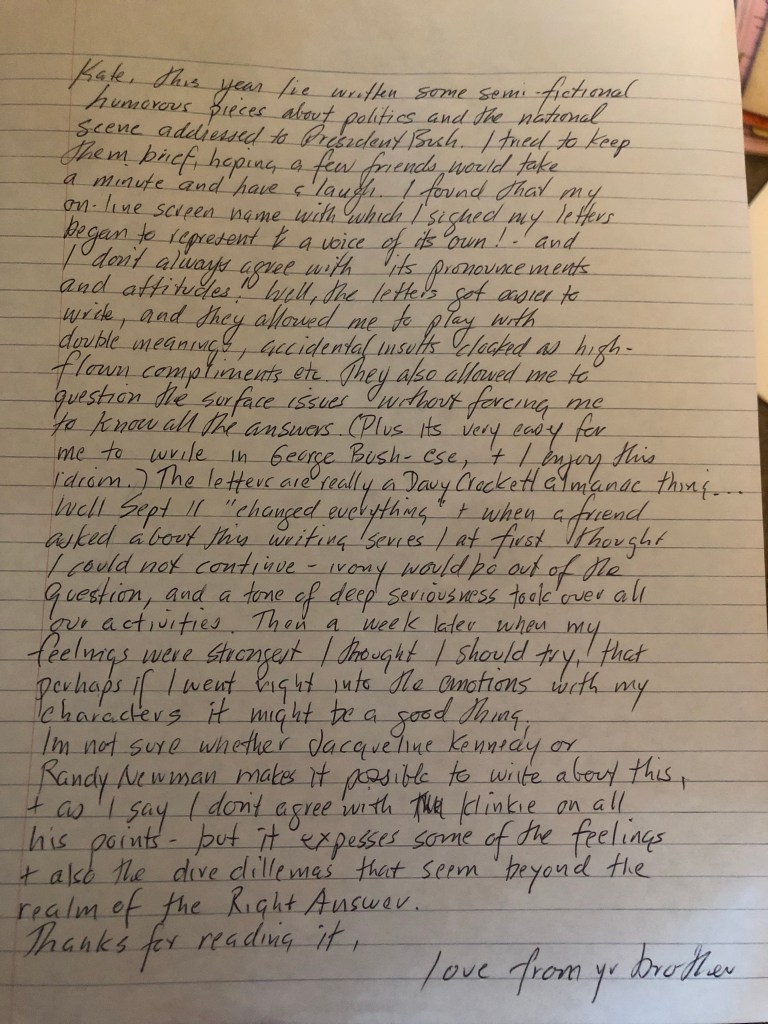 Kate, this year I've written some semi-fictional
humorous pieces about politics and the national
scene addressed to President Bush. I tried to keep
them brief, hoping a few friends would take
a minute and have a laugh. I found that my
on-line screen name with which I signed my letters
began to represent a voice of its own! - and
I don't always agree with its pronouncements
and attitudes! Well, the letters got easier to
write, and they allowed me to play with
double meanings, accidental insults cloaked as high-
flown compliments etc. They also allowed me to
question the surface issues without forcing me
to know all the answers. (Plus its very easy for
me to write in George Bush-ese, + I enjoy this
idiom.) The letters are really a Davy Crockett almanac thing...
Well Sept 11 "changed everything" + when a friend
asked about this writing series I at first thought
I could not continue - irony would be out of the
question, and a tone of deep seriousness took over all
our activities. Then a week later when my
feelings were strongest I thought I should try, that
perhaps if I went right into the emotions with my
characters it might be a good thing.
Im not sure whether Jacqueline Kennedy or
Randy Newman makes it possible to write about this,
+ as I say I don't agree with Klinkie on all
his points - but it expesses some of the feelings
+ also the dire dillemas that seem beyond the
realm of the Right Answer.
Thanks for reading it,
love from yr brother